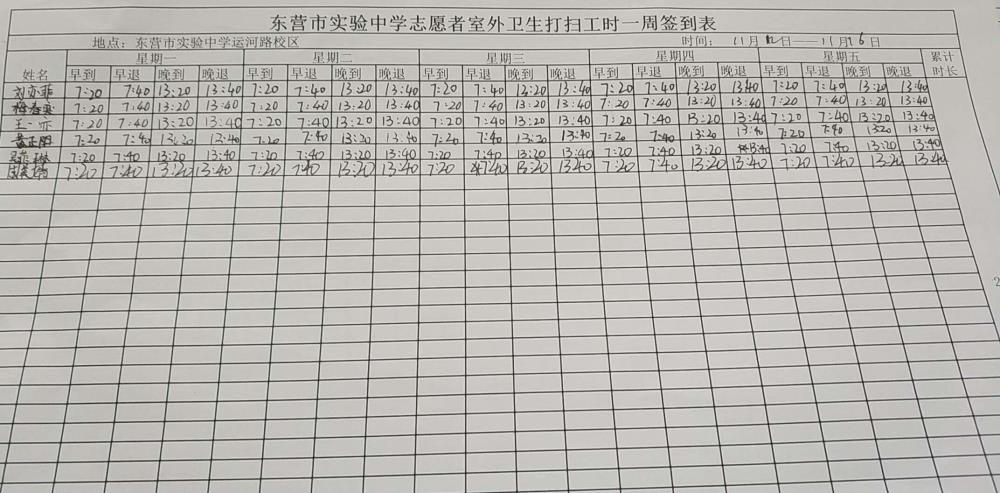 东营市实验中学志愿者室外卫生打扫工时一周签到表
地点：东营市实验中学运河路校区 时间： 11月12日——11月16日
姓名 星期一 星期二 星期三 星期四 星期五 累计时长
早到 早退 晚到 晚退 早到 早退 晚到 晚退 早到 早退 晚到 晚退 早到 早退 晚到 晚退 早到 早退 晚到 晚退
7:20 7:40 13:20 13:40 7:20 7:40 13:20 13:40 7:20 7:40 13:20 13:40 7:20 7:40 13:20 13:40 7:20 7:40 13:20 13:40
7:20 7:40 13:20 13:40 7:20 7:40 13:20 13:40 7:20 7:40 13:20 13:40 7:20 7:40 13:20 13:40 7:20 7:40 13:20 13:40
王一亦 7:20 7:40 13:20 13:40 7:20 7:40 13:20 13:40 7:20 7:40 13:20 13:40 7:20 7:40 13:20 13:40 7:20 7:40 13:20 13:40
7:20 7:40 13:20 13:40 7:20 7:40 13:20 13:40 7:20 7:40 13:20 13:40 7:20 7:40 13:20 13:40 7:20 7:40 13:20 13:40
7:20 7:40 13:20 13:40 7:20 7:40 13:20 13:40 7:20 7:40 13:20 13:40 7:20 7:40 13:20 13:40 7:20 7:40 13:20 13:40
7:20 7:40 13:20 13:40 7:20 7:40 13:20 13:40 7:20 7:40 13:20 13:40 7:20 7:40 13:20 13:40 7:20 7:40 13:20 13:40